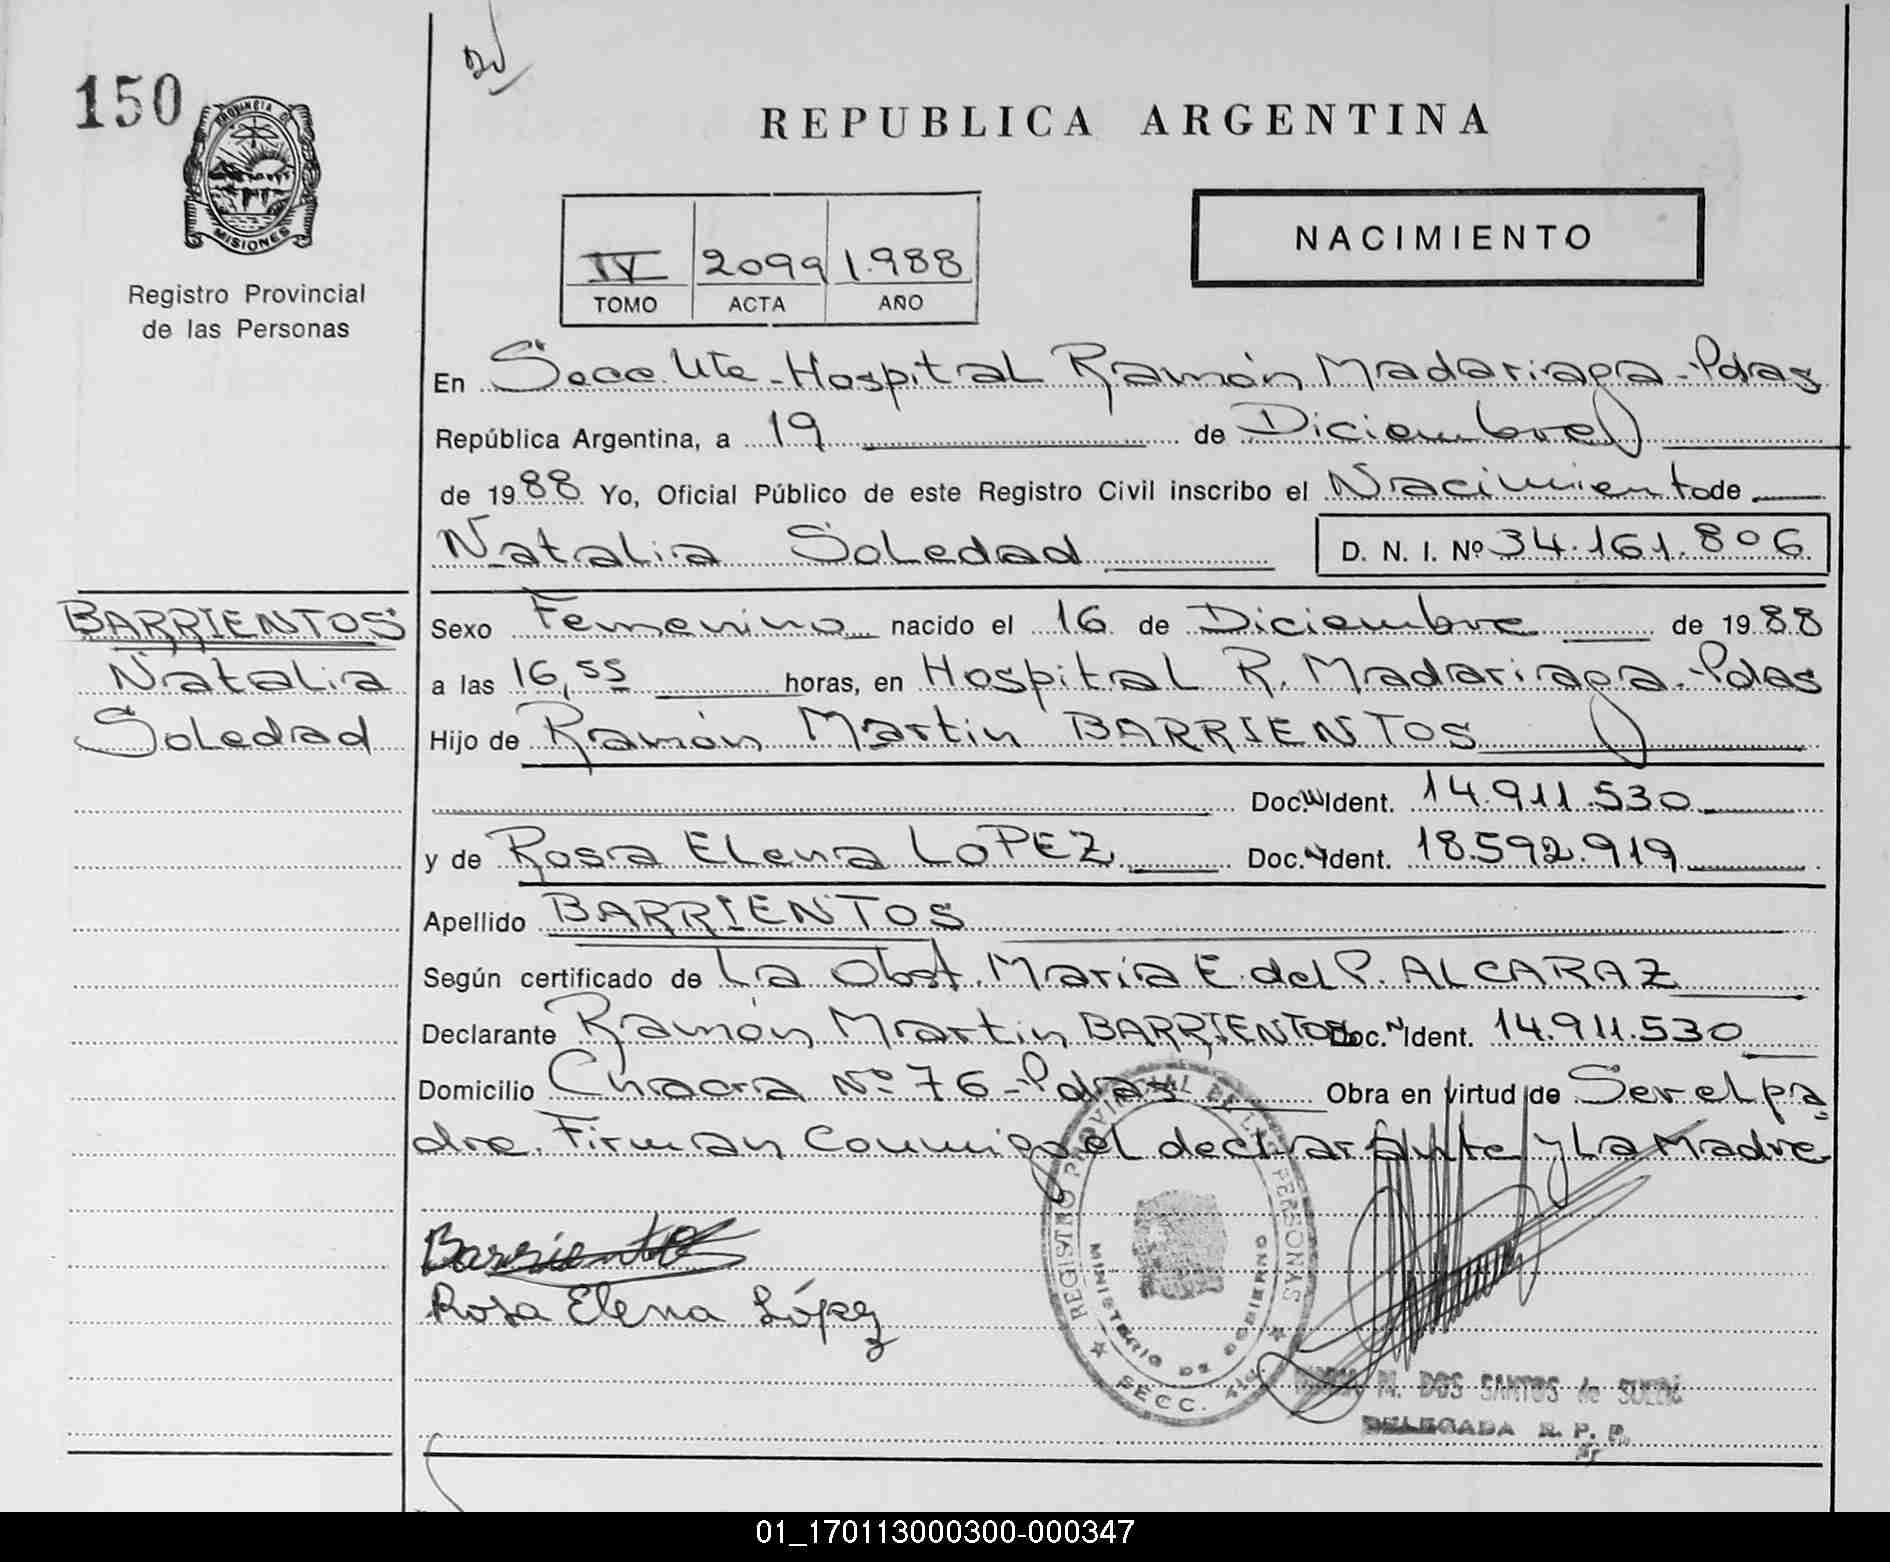 150
PROVINCIA DE
MISIONES
Registro Provincial
de las Personas
REPUBLICA ARGENTINA
IV 2099 1.988
TOMO ACTA AÑO
NACIMIENTO
En Secc. Hospital Ramón Madariaga - Pdas
República Argentina, a 19 de Diciembre
de 1988 Yo, Oficial Público de este Registro Civil inscribo el Nacimiento de
Natalia Soledad D. N. I. Nº 34.161.806
BARRIENTOS
Natalia
Soledad
Sexo Femenino nacido el 16 de Diciembre de 1988
a las 16,55 horas, en Hospital R. Madariaga - Pdas
Hijo de Ramón Martin BARRIENTOS
Doc. Ident. 14.911.530
y de Rosa Elena LOPEZ Doc. Ident. 18.592.919
Apellido BARRIENTOS
Según certificado de La Obst. María E. del P. ALCARAZ
Declarante Ramón Martin BARRIENTOS Doc. Ident. 14.911.530
Domicilio Chacra Nº 76 - Pdas Obra en virtud de Ser el pa
dre. Firman conmigo el declarante y La Madre
Barrientos
Rosa Elena López
REGISTRO PROVINCIAL DE LAS PERSONAS
MINISTERIO DE GOBIERNO
SECC.
M. DOS SANTOS de
DELEGADA R. P. P.
01_170113000300-000347